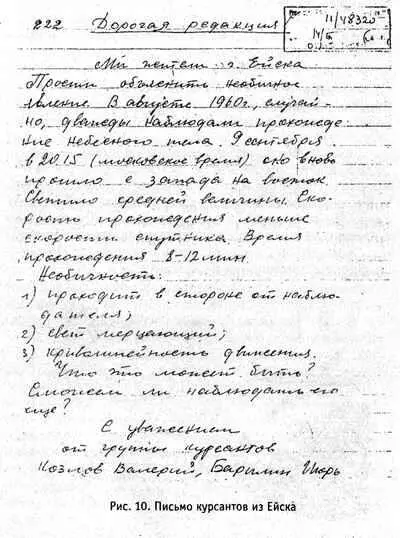 222 Дорогая редакция
11/48320
Мы жители г. Ейска
Просим объяснить необычное
явление. В августе 1960г., случай-
но, дважды наблюдали прохожде-
ние небесного тела. 9 сентября
в 20.15 (московское время) оно вновь
прошло с запада на восток.
Светило средней величины. Ско-
рость прохождения меньше
скорости спутника. Время
прохождения 8-12 мин.
Необычность:
1) проходит в стороне от наблю-
дателя;
2) свет мерцающий;
3) криволинейность движения.
Что это может быть?
Сможем ли наблюдать его
еще?
С уважением
от группы курсантов
Козлов Валерий, Барилин Игорь
Рис. 10. Письмо курсантов из Ейска